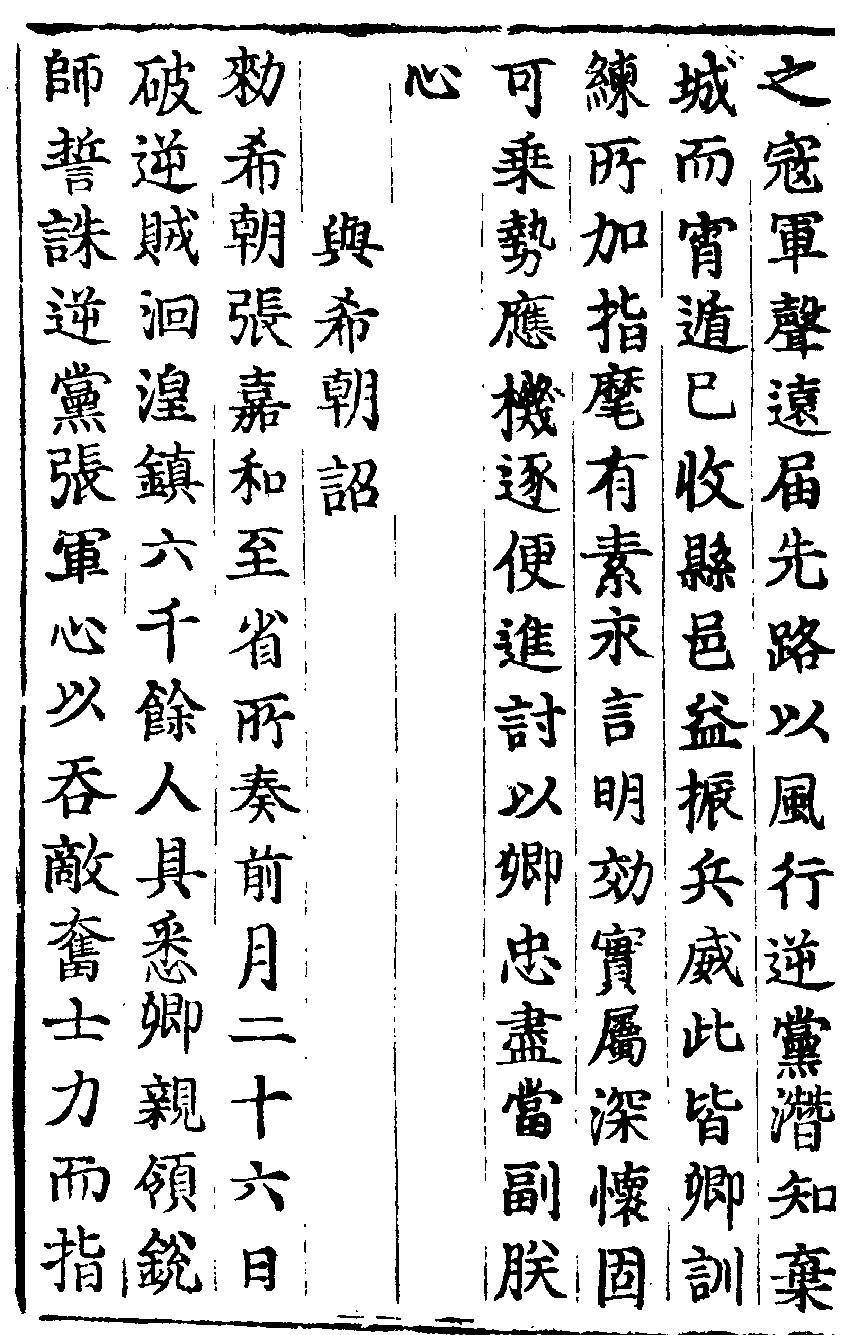 之寇軍聲遠届先路以風行逆黨潛知棄
城而宵遁巳收縣邑益振兵威此皆卿訓
練所加指麾有素永言明効實屬深懷固
可乗勢應機逐便進討以卿忠盡當副朕
心
與希朝詔
勑希朝張嘉和至省所奏前月二十六日
破逆賊洄湟鎮六千餘人具悉卿親領銳
師誓誅逆黨張軍心以吞敵奮士力而指